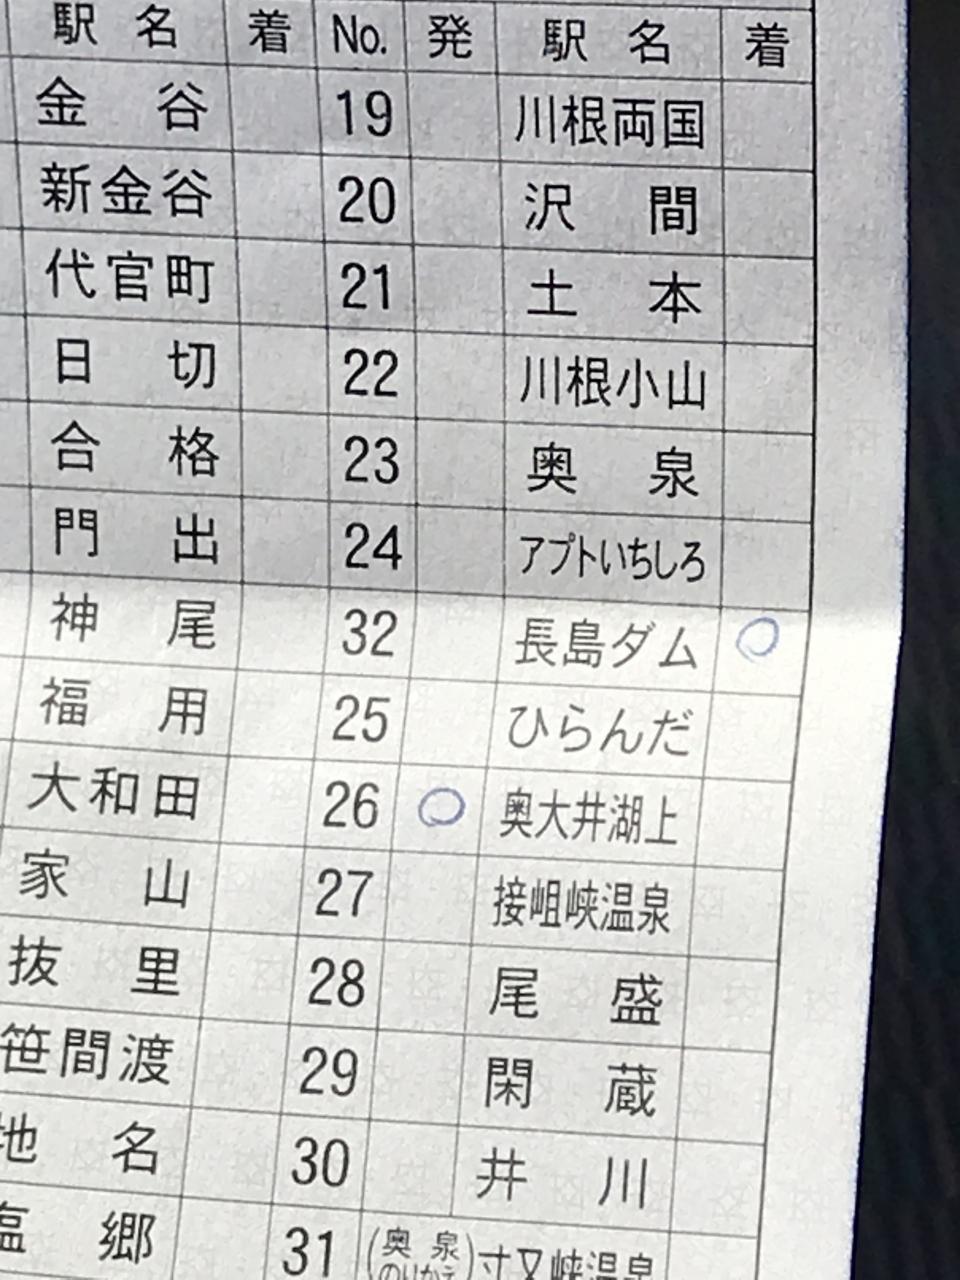 駅名 着 No. 発 駅名 着
金谷 19 川根両国
新金谷 20 沢間
代官町 21 土本
日切 22 川根小山
合格 23 奥泉
門出 24 アプトいちしろ
神尾 32 長島ダム ○
福用 25 ひらんだ
大和田 26 ○ 奥大井湖上
家山 27 接岨峡温泉
抜里 28 尾盛
笹間渡 29 閑蔵
地名 30 井川
塩郷 31 (奥泉のりかえ) 寸又峡温泉